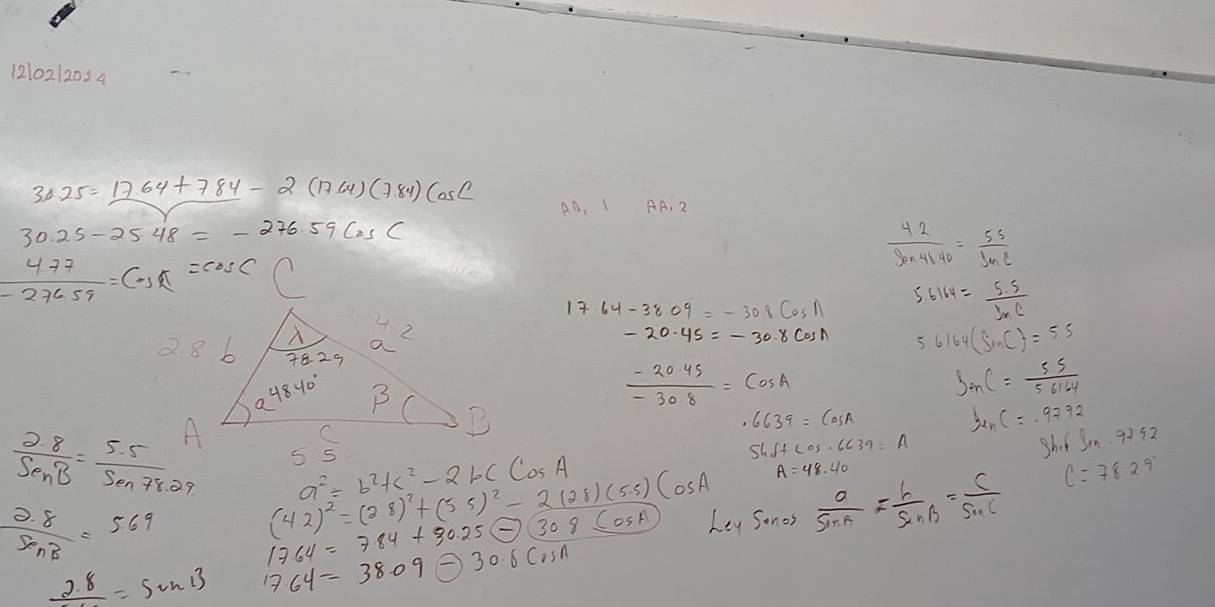 12/02/2024
30.25 = 17.64 + 7.84 - 2 (17.64)(7.84) Cos C
30.25 - 25.48 = - 276.59 Cos C
4.77 / -276.59 = Cos A = cos C
C
2.8 b
λ
78.29
4.2
a
a 48.40°
β
A
B
c
5.5
2.8 / Sen B = 5.5 / Sen 78.29
2.8 / Sen B = 5.69
2.8 / = Sen B
a² = b² + c² - 2bc Cos A
(4.2)² = (2.8)² + (5.5)² - 2(2.8)(5.5) Cos A
17.64 = 7.84 + 30.25 - 30.8 Cos A
17.64 = 38.09 - 30.8 Cos A
AA. 1 AA. 2
17.64 - 38.09 = - 30.8 Cos A
- 20.45 = - 30.8 Cos A
- 20.45 / - 30.8 = Cos A
.6639 = Cos A
Shift cos .6639 = A
A = 48.40
Ley Senos a / Sen A = b / Sen B = c / Sen C
4.2 / Sen 48.40 = 5.5 / Sen C
5.6164 = 5.5 / Sen C
5.6164 (Sen C) = 5.5
Sen C = 5.5 / 5.6164
Sen C = .9792
Shif Sen .9792
C = 78.29°